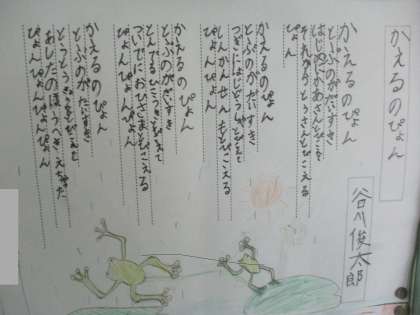 かえるのぴょん
谷川俊太郎
かえるのぴょん
とぶのがだいすき
はじめにかあさんとびこえて
それからとうさんとびこえる
ぴょん
かえるのぴょん
とぶのがだいすき
つぎにはじどうしゃとびこえて
しんかんせんもとびこえる
ぴょんぴょん
かえるのぴょん
とぶのがだいすき
とんでるひこうきとびこえて
ついでにおひさまとびこえる
ぴょんぴょんぴょん
かえるのぴょん
とぶのがだいすき
とうとうきょうをとびこえて
あしたのほうへきえちゃった
ぴょんぴょんぴょんぴょん